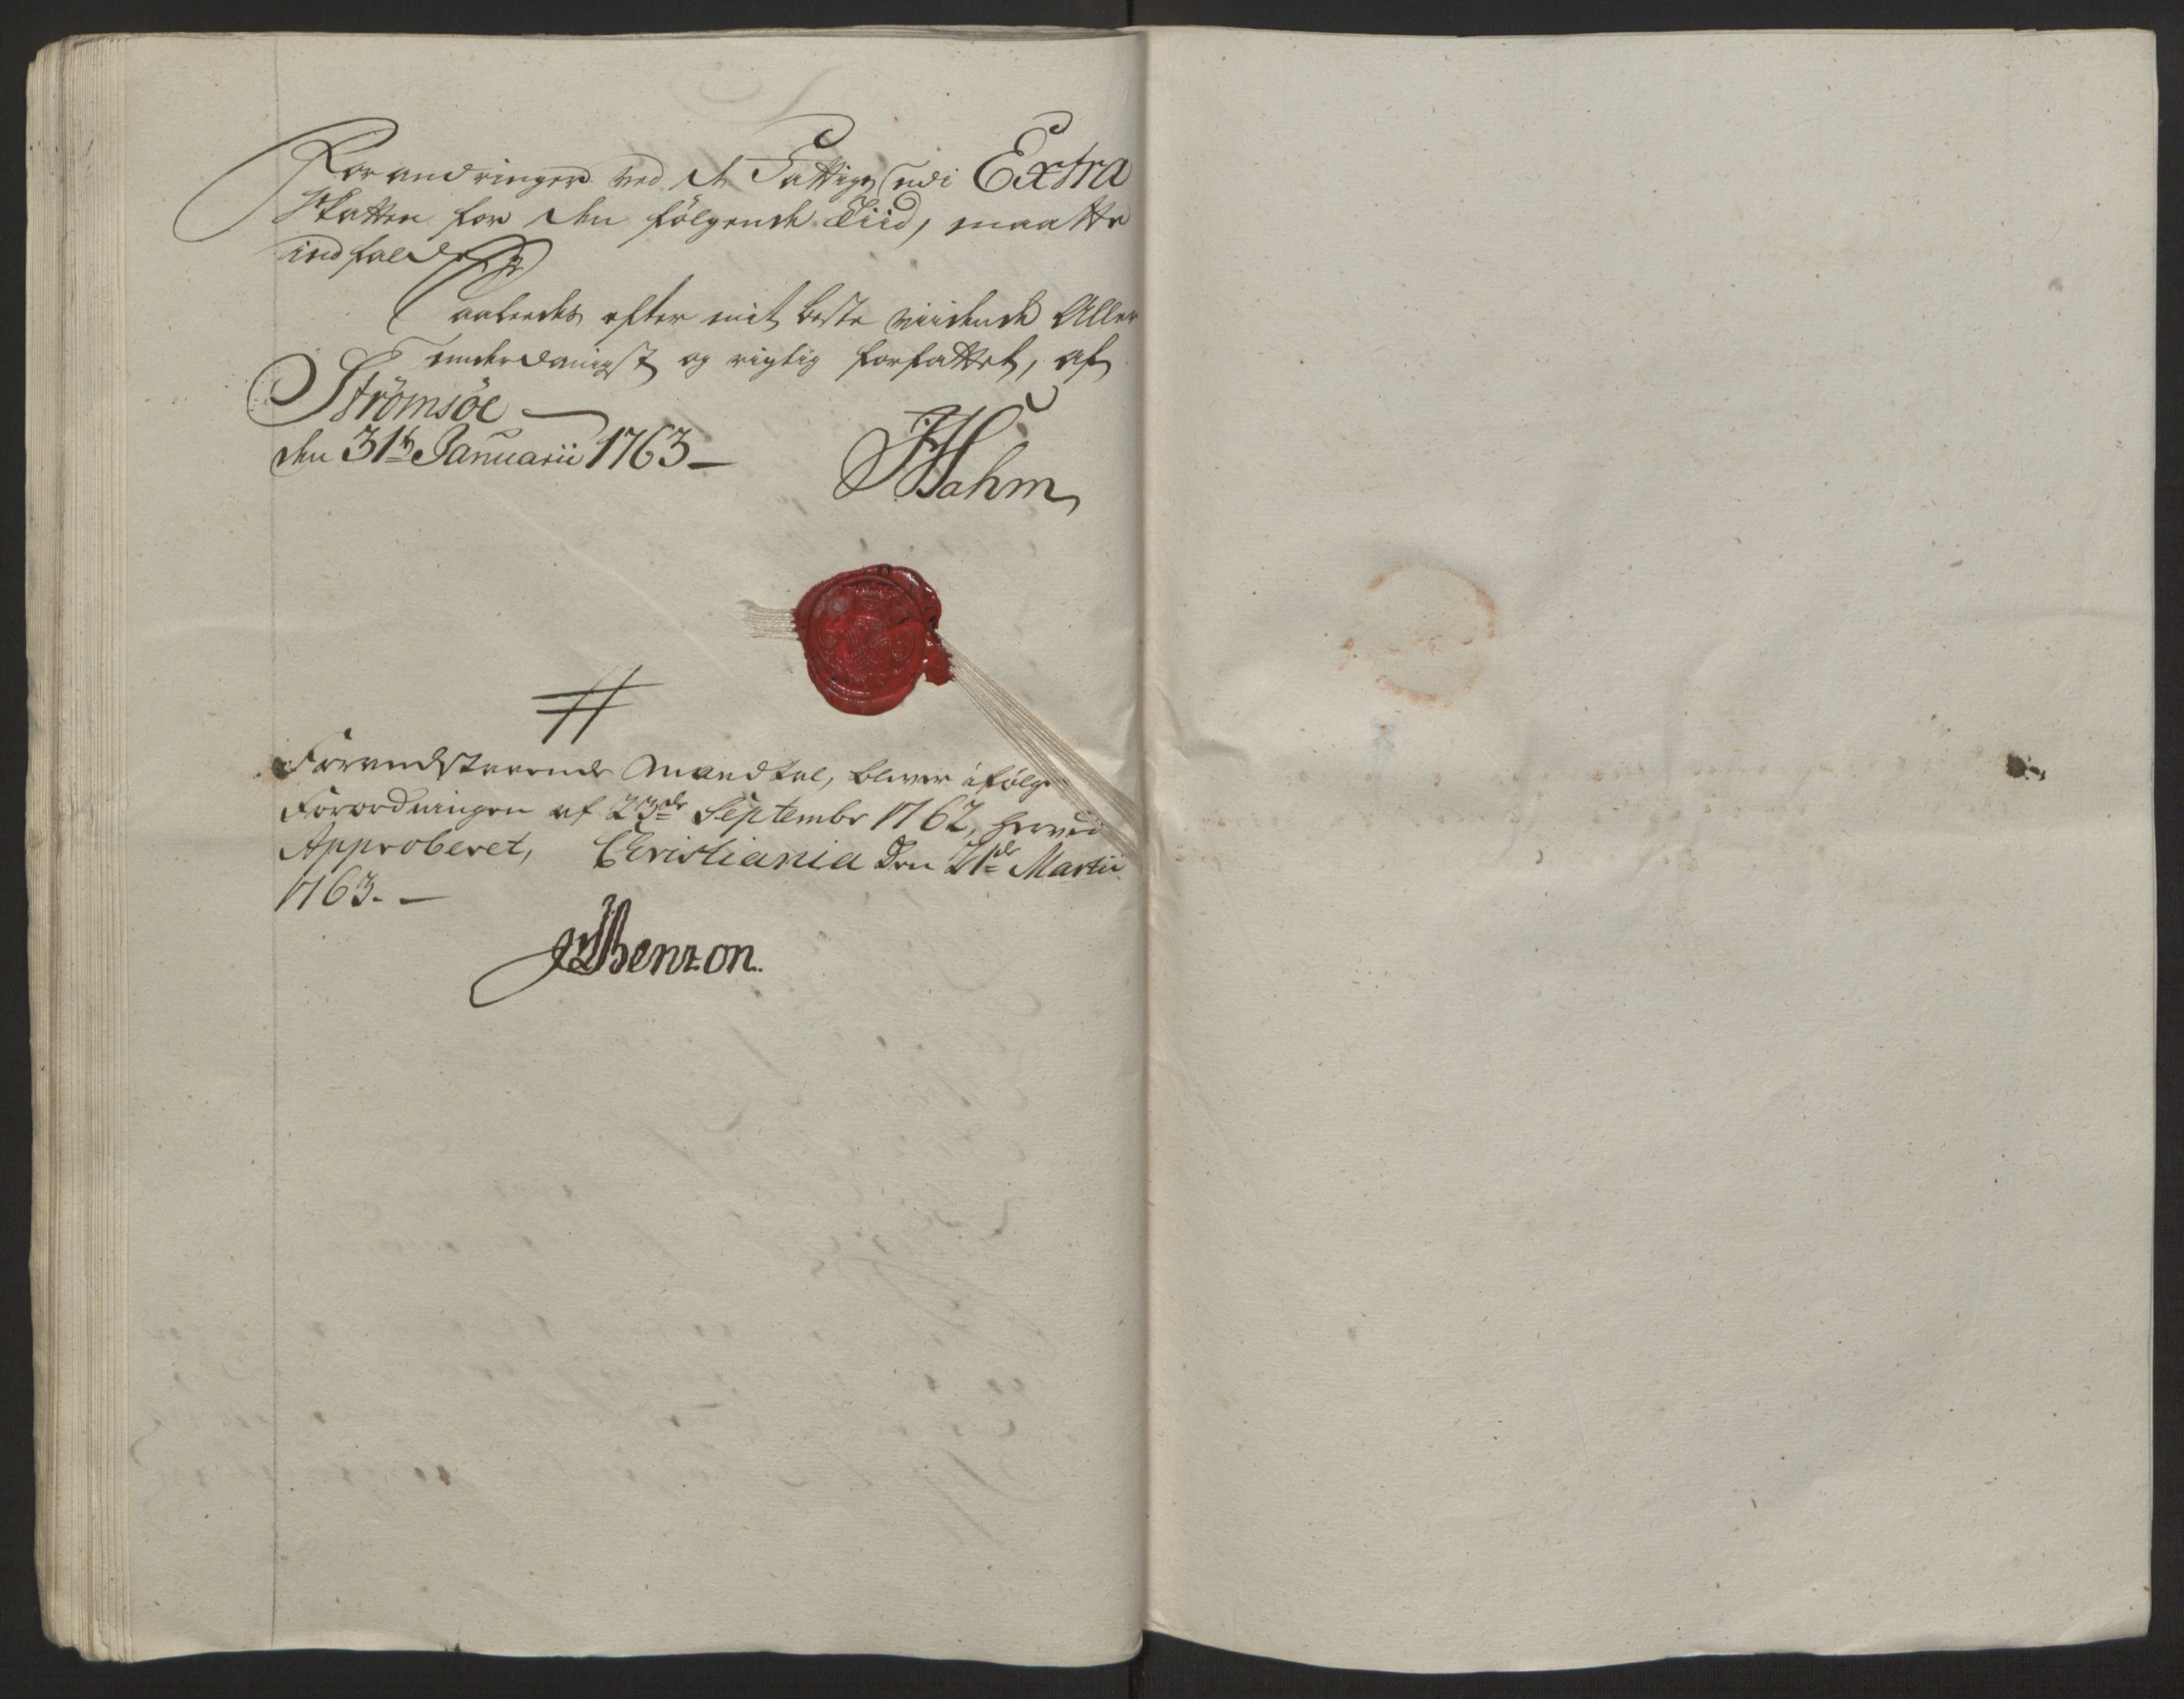 Forandringer ved de Fattige udi Extra
Skatten for den følgende Tiid, maatte
indfalde
Saaledes efter mit beste viidende Aller
underdanigst og rigtig forfattet, af
Strömsöe
den 31te Januarii 1763 —
Forandstaaende Mandtal, bliver i følge
Forordningen af 23de Septembr 1762, herved
Approberet, Christiania den 21de Martii
1763. —
Benzon.